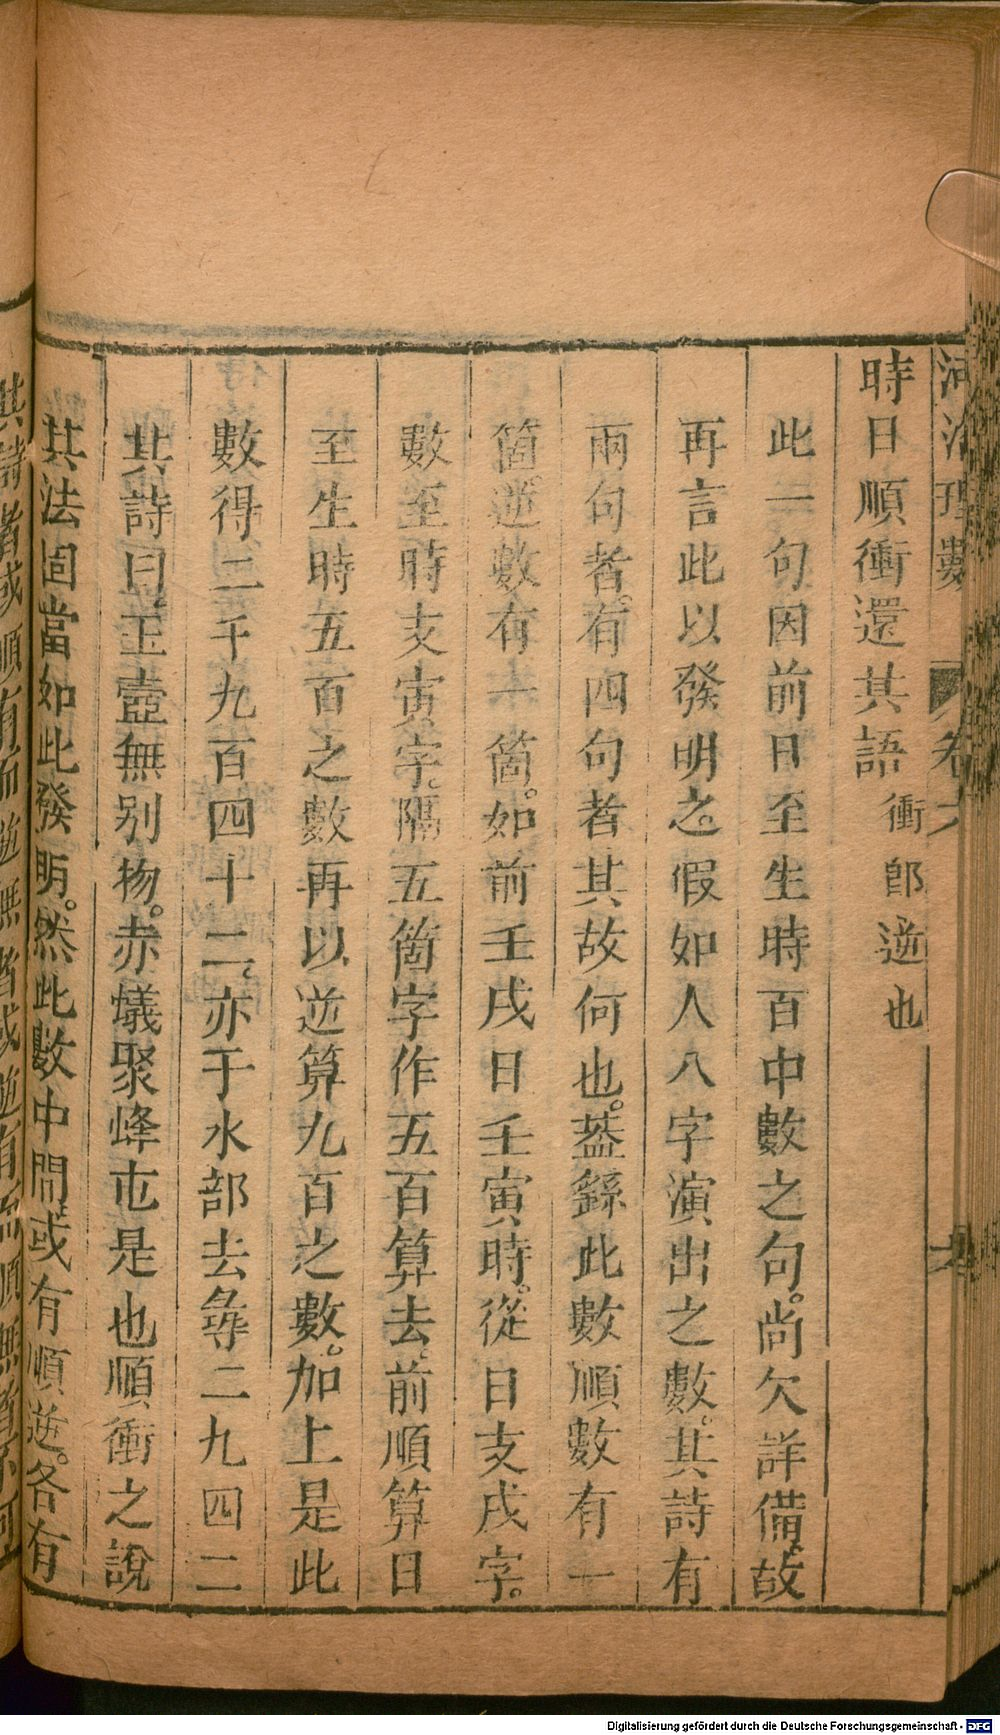 河洛理數 卷六
時日順衝還其語衝郎逆也
此一句因前日至生時百中數之句。尚欠詳備。故
再言此以發明之。假如人八字演出之數。其詩有
兩句者。有四句者其故何也。葢繇此數順數有一
箇。逆數有一箇。如前壬戌日壬寅時。從日支戌字。
數至時支寅字。隔五箇字作五百算去。前順算日
至生時五百之數再以逆算九百之數。加上是此
數得二千九百四十二。亦于水部去尋二九四二
其詩曰。正壼無别物。赤蟻聚蜂屯是也順衝之說
其法固當如此發明。然此數中間。或有順逆。各有
Digitalisierung gefördert durch die Deutsche Forschungsgemeinschaft - DFG